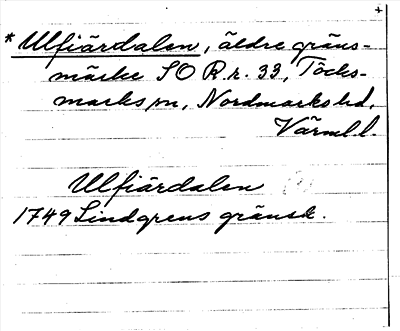 +
* Ulfiärdalen, äldre gräns-
märke SO R.r. 33, Töcks-
marks sn, Nordmarks hd,
Värml l.
Ulfiärdalen (?)
1749 Lindgrens gränsk.